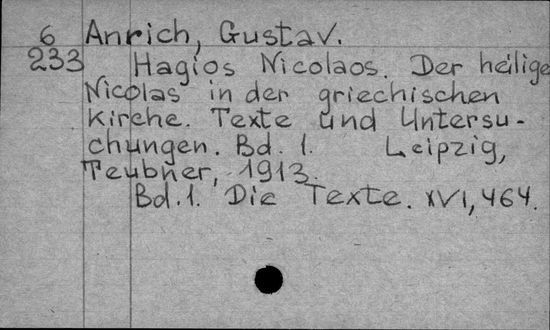 6 Anrich, Gustav.
233 Hagios Nicolaos. Der heilige
Nicolas in der griechischen
Kirche. Texte und Untersu-
chungen. Bd. 1. Leipzig,
Teubner, 1913.
Bd. 1. Die Texte. XVI, 464.